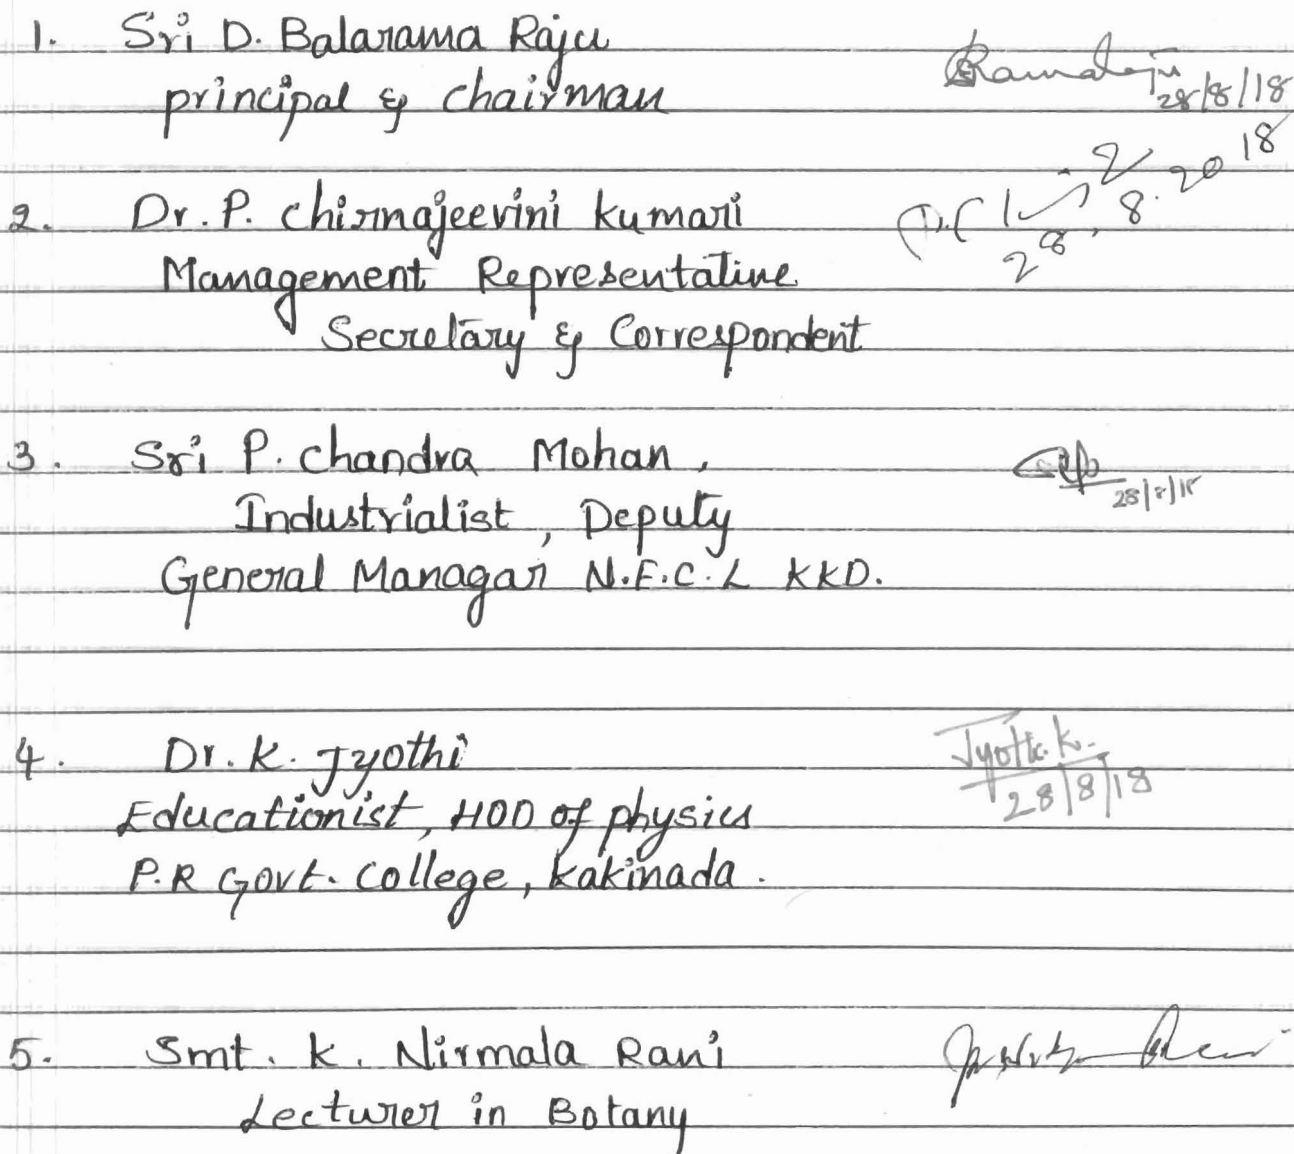 1. Sri D. Balarama Raju
principal & chairman
28/8/18
2. Dr. P. Chirnajeevini kumari
28.8.2018
Management Representative
Secretary & Correspondent
3. Sri P. Chandra Mohan,
28/8/18
Industrialist, Deputy
General Managar N.F.C.L KKD.
4. Dr. K. Jyothi
Jyothi. K.
28/8/18
Educationist, HOD of physics
P.R Govt. College, kakinada.
5. Smt. K. Nirmala Rani
Lecturer in Botany